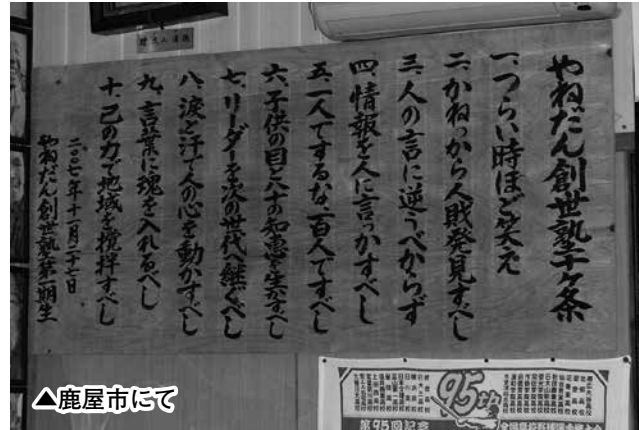 やねだん創世塾十ヶ条
一、つらい時ほど笑え
二、かねっから人財発見すべし
三、人の言に逆うべからず
四、情報を人に言っかすべし
五、一人でするな、百人ですべし
六、子供の目と八十の知恵を生かすべし
七、リーダーを次の世代へ継ぐべし
八、涙と汗で人の心を動かすべし
九、言葉に魂を入れるべし
十、己の力で地域を攪拌すべし
二〇〇七年十一月二十七日
やねだん創世塾第二期生
95th
第95回記念
▲鹿屋市にて